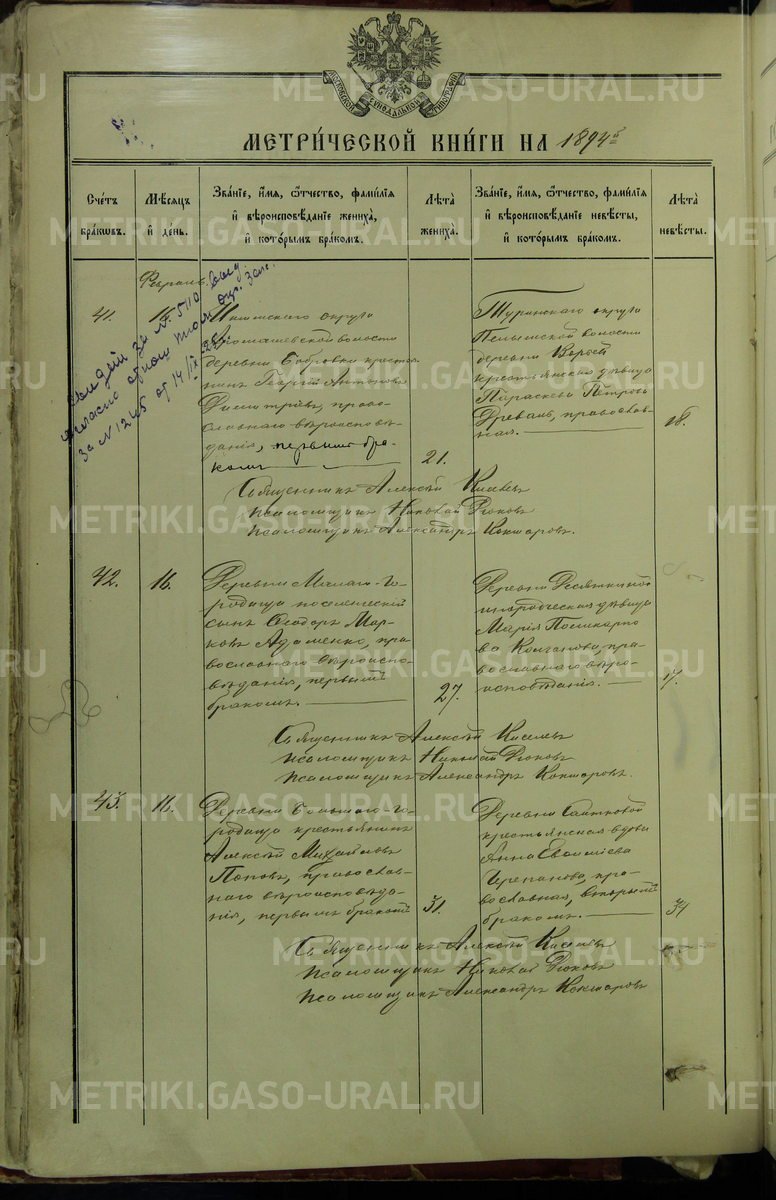 МОСКОВСКОЙ СѴНОДАЛЬНОЙ ТИПОГРАФІИ
МЕТРИ́ЧЕСКОЙ КНИ́ГИ НА 1894 г
Сче́тъ бра́кωвъ.
Мѣ́сяцъ и҆ де́нь.
Зва́нїе, и҆́мѧ, ѻ҆́тчество, фами́лїѧ и҆ вѣроисповѣ́данїе жениха̀, и҆ кото́рымъ бра́комъ.
Лѣ́та жениха̀.
Зва́нїе, и҆́мѧ, ѻ҆́тчество, фами́лїѧ и҆ вѣроисповѣ́данїе невѣ́сты, и҆ кото́рымъ бра́комъ.
Лѣ́та невѣ́сты.
Февраль.
за № 5110
согласно
за № 1245 от 14/IX
41.
16.
Ишимскаго округа
волости
деревни Бобровки крестья
нинъ Георгій Антоновъ
Димитріевъ, право-
славнаго вѣроисповѣ-
данія, первымъ бра-
комъ
21.
Туринскаго округа
Пелымской волости
деревни
крестьянская дѣвица
Параскева Петрова
православ-
ная.
18.
Священникъ Алексѣй Киселевъ
Псаломщикъ Николай Рюковъ
Псаломщикъ Александръ Кокшаровъ.
42.
16.
Деревни Малаго-Го-
родища поселенческій
сынъ Ѳеодоръ Мар-
ковъ Адаменко, пра-
вославнаго вѣроиспо-
вѣданія, первымъ
бракомъ.
27.
Деревни
инородческая дѣвица
Марія Поликарпо
ва Колганова, пра-
вославнаго вѣро-
исповѣданія.
17.
Священникъ Алексѣй Киселевъ
Псаломщикъ Николай Рюковъ
Псаломщикъ Александръ Кокшаровъ.
43.
16.
Деревни Большаго-Го-
родища крестьянинъ
Алексѣй Михайловъ
Поповъ, православ-
наго вѣроисповѣда-
нія, первымъ бракомъ
31.
Деревни Саитковой
крестьянская вдова
Анна Евсиміева
Черепанова, пра-
вославная, вторымъ
бракомъ.
34
Священникъ Алексѣй Киселевъ
Псаломщикъ Николай Рюковъ
Псаломщикъ Александръ Кокшаровъ
METRIKI.GASO-URAL.RU